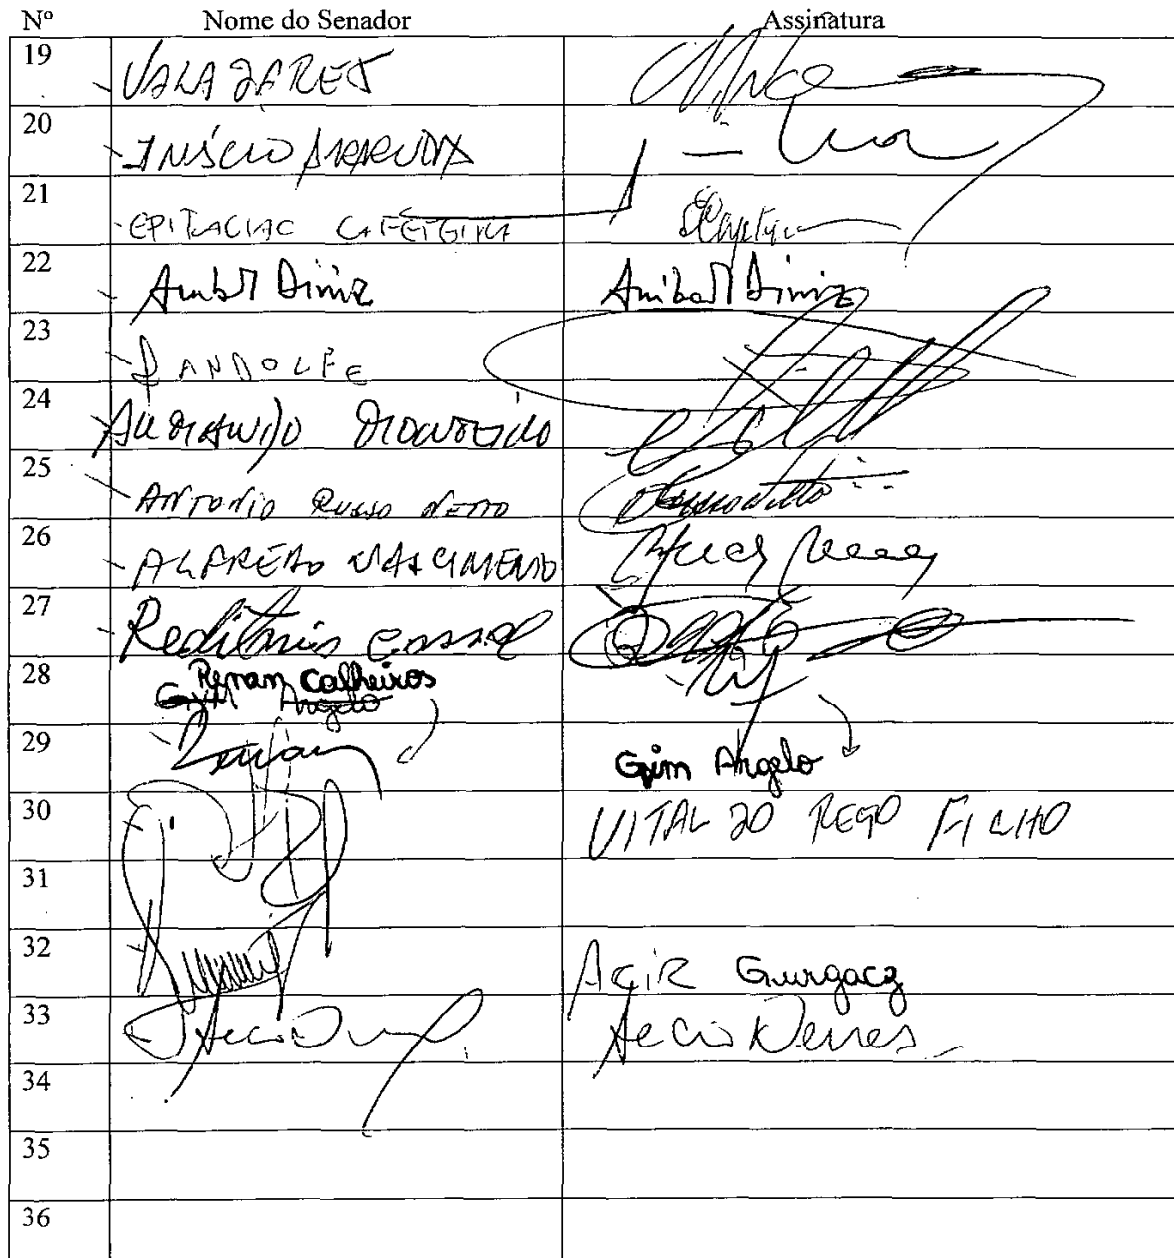 Nº Nome do Senador Assinatura
19 VALADARES
20 INÁCIO ARRUDA
21 EPITACIAC CAFETEIRA
22 Anibal Diniz Anibal Diniz
23 RANDOLFE
24 ARMANDO MONTEIRO
25 ANTONIO RUSSO NETTO
26 ALFREDO NASCIMENTO
27 Reditario Cassol
28 Renan Calheiros
Gim Argelo
29 Renan Gim Argelo
30 VITAL DO REGO FILHO
31
32 ACIR Gurgacz
33 Aecio Neves
34
35
36